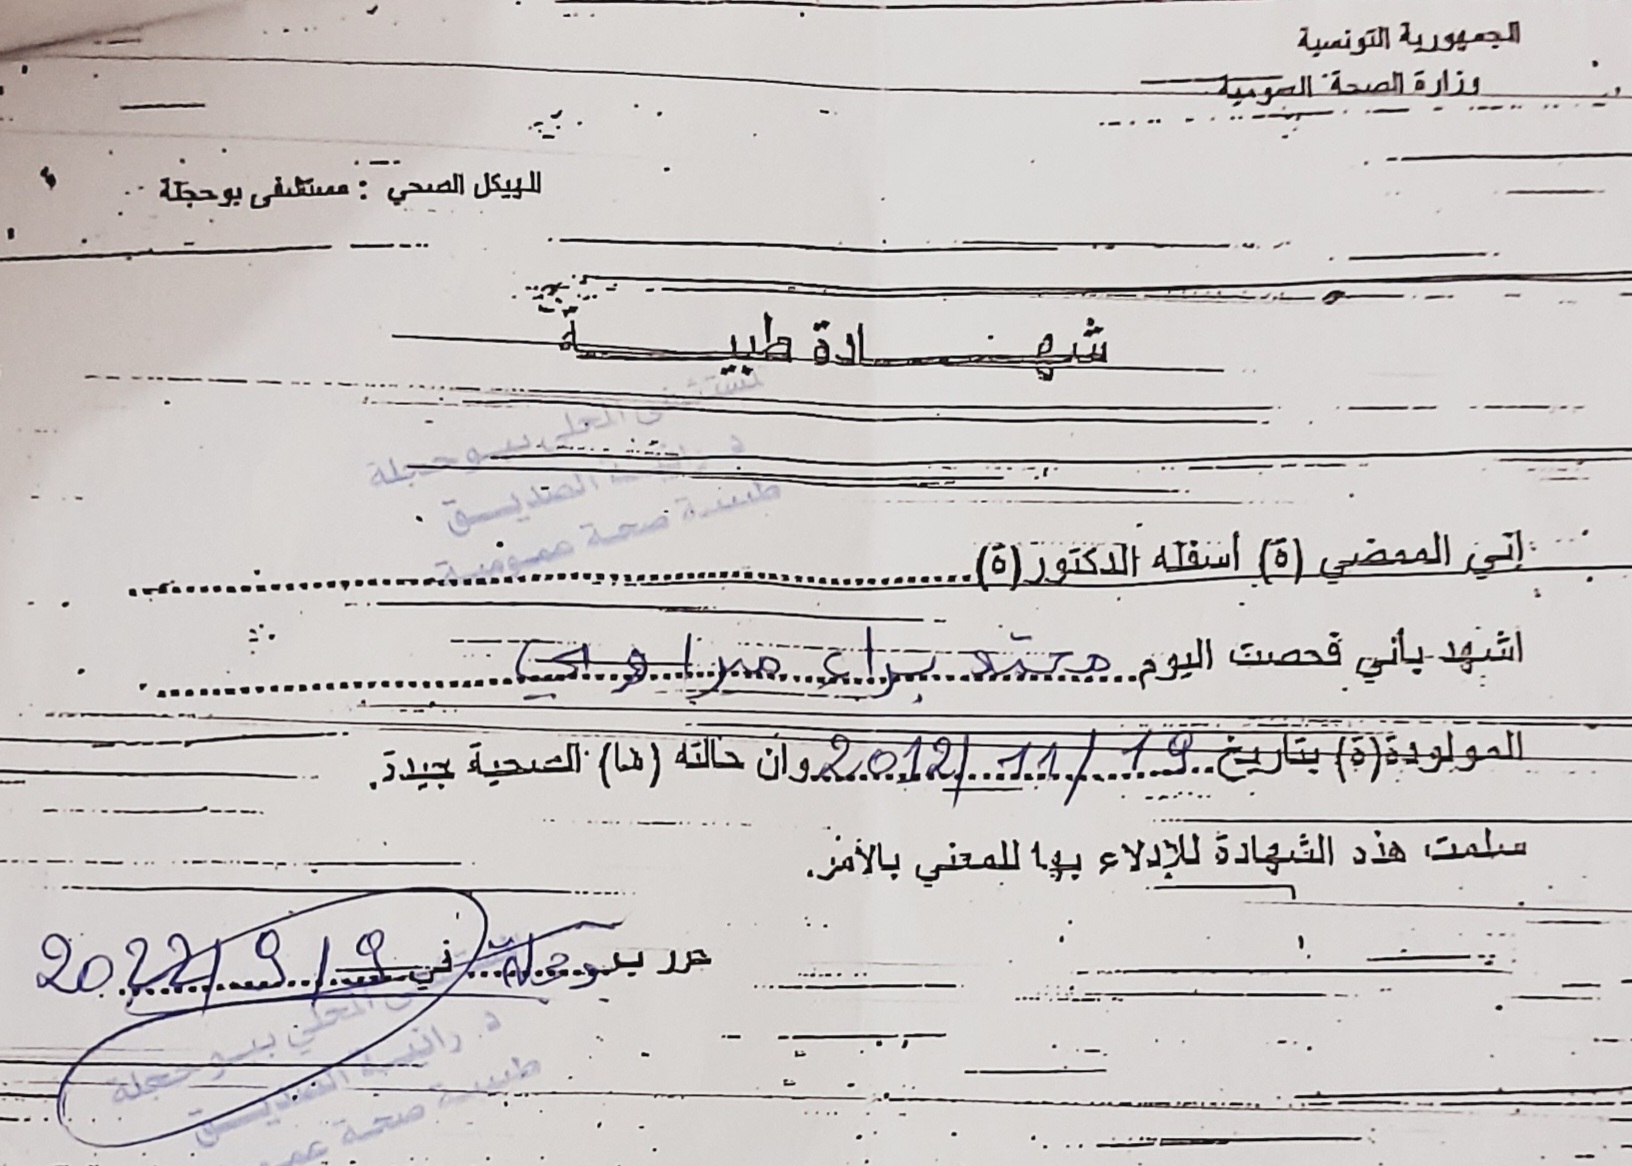 الجمهورية التونسية
وزارة الصحة العمومية
الهيكل الصحي : مستشفى بوحجلة
شهادة طبية
مستشفى المحلي ببوحجلة
د. رانية الصديق
طبيبة صحة عمومية
إني الممضي (ة) أسفله الدكتور(ة)
اشهد بأني فحصت اليوم محمد براء صراوي
المولودة(ة) بتاريخ 19/11/2012 وان حالته (ها) الصحية جيدة.
سلمت هذه الشهادة للإدلاء بها للمعني بالأمر.
حرر ببوحجلة في 9/9/2022
المحلي ببوحجلة
د. رانية الصديق
طبيبة صحة